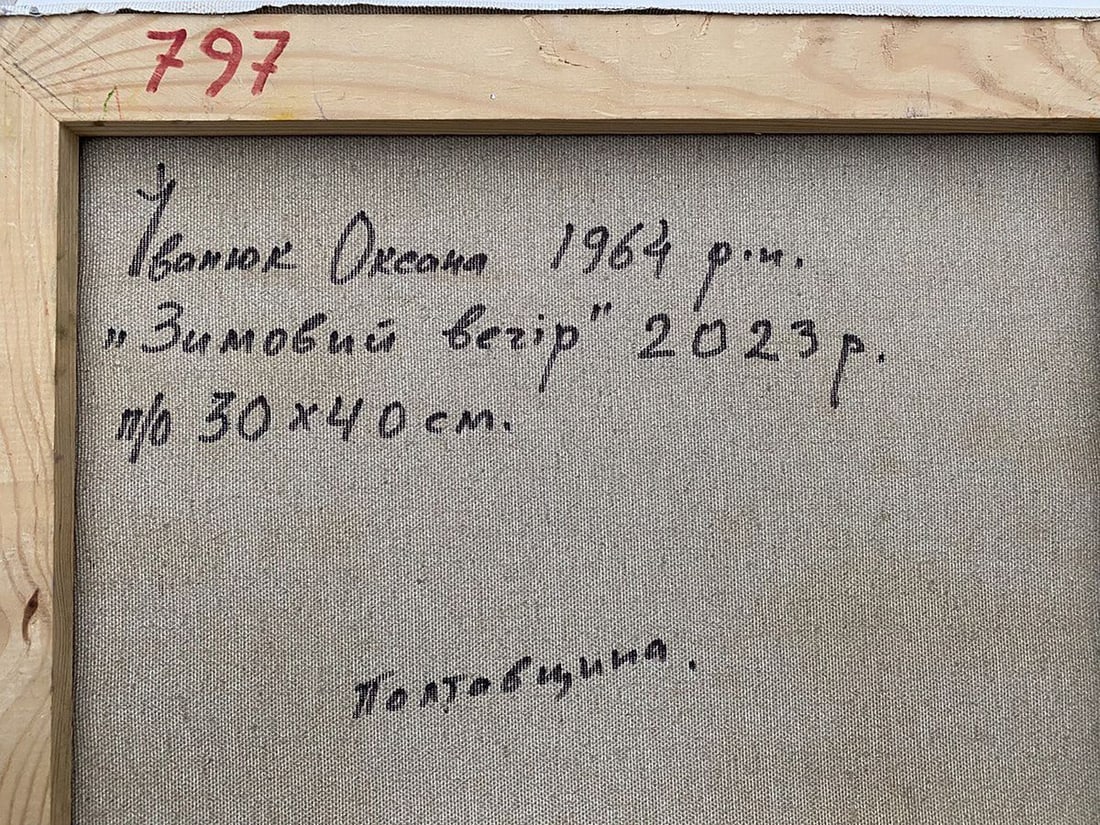 797
Іванюк Оксана 1964 р.н.
„Зимовий вечір" 2023 р.
п/о 30х40 см.
Полтавщина.